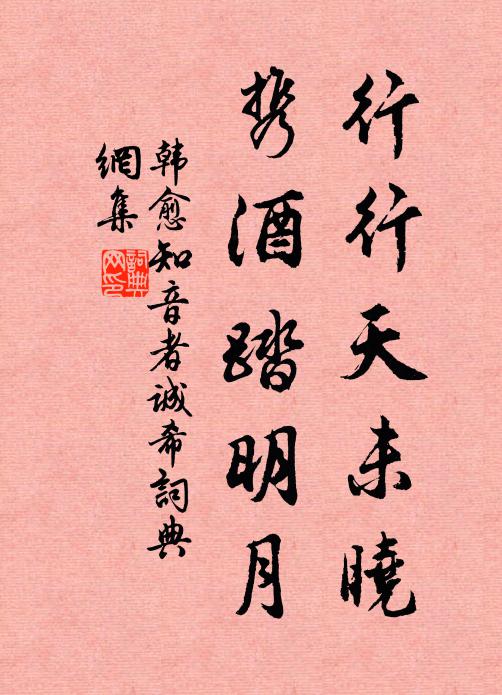 行行天未曉
携酒踏明月
韩愈知音者诚希詞典
網集
詞典
网印